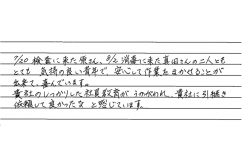 7/20 検査に来た原さん、8/2 消毒に来た真田さんの二人とも
とても 気持の良い青年で、安心して作業をまかせることが
出来て、喜んでいます。
貴社のしっかりした社員教育が うかがわれ、貴社に引続き
依頼して良かったな と感じています。